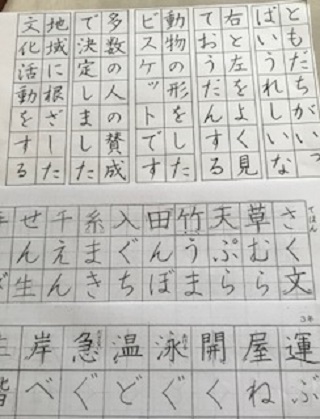 ともだちがいい
ばいうれしいな
右と左をよく見
ておうだんする
動物の形をした
ビスケットです
多数の人の賛成
で決定しました
地域に根ざした
文化活動をする
てほん
さく文
草むら
天ぷら
竹うま
田んぼ
入ぐち
糸まき
千えん
せん生
3年
運ぶ
屋ね
開く
泳ぐ
温ど
急ぐ
岸べ